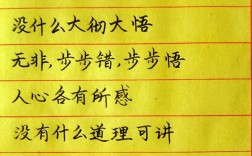 没什么大彻大悟
无非,步步错,步步悟
人心各有所感
没有什么道理可讲